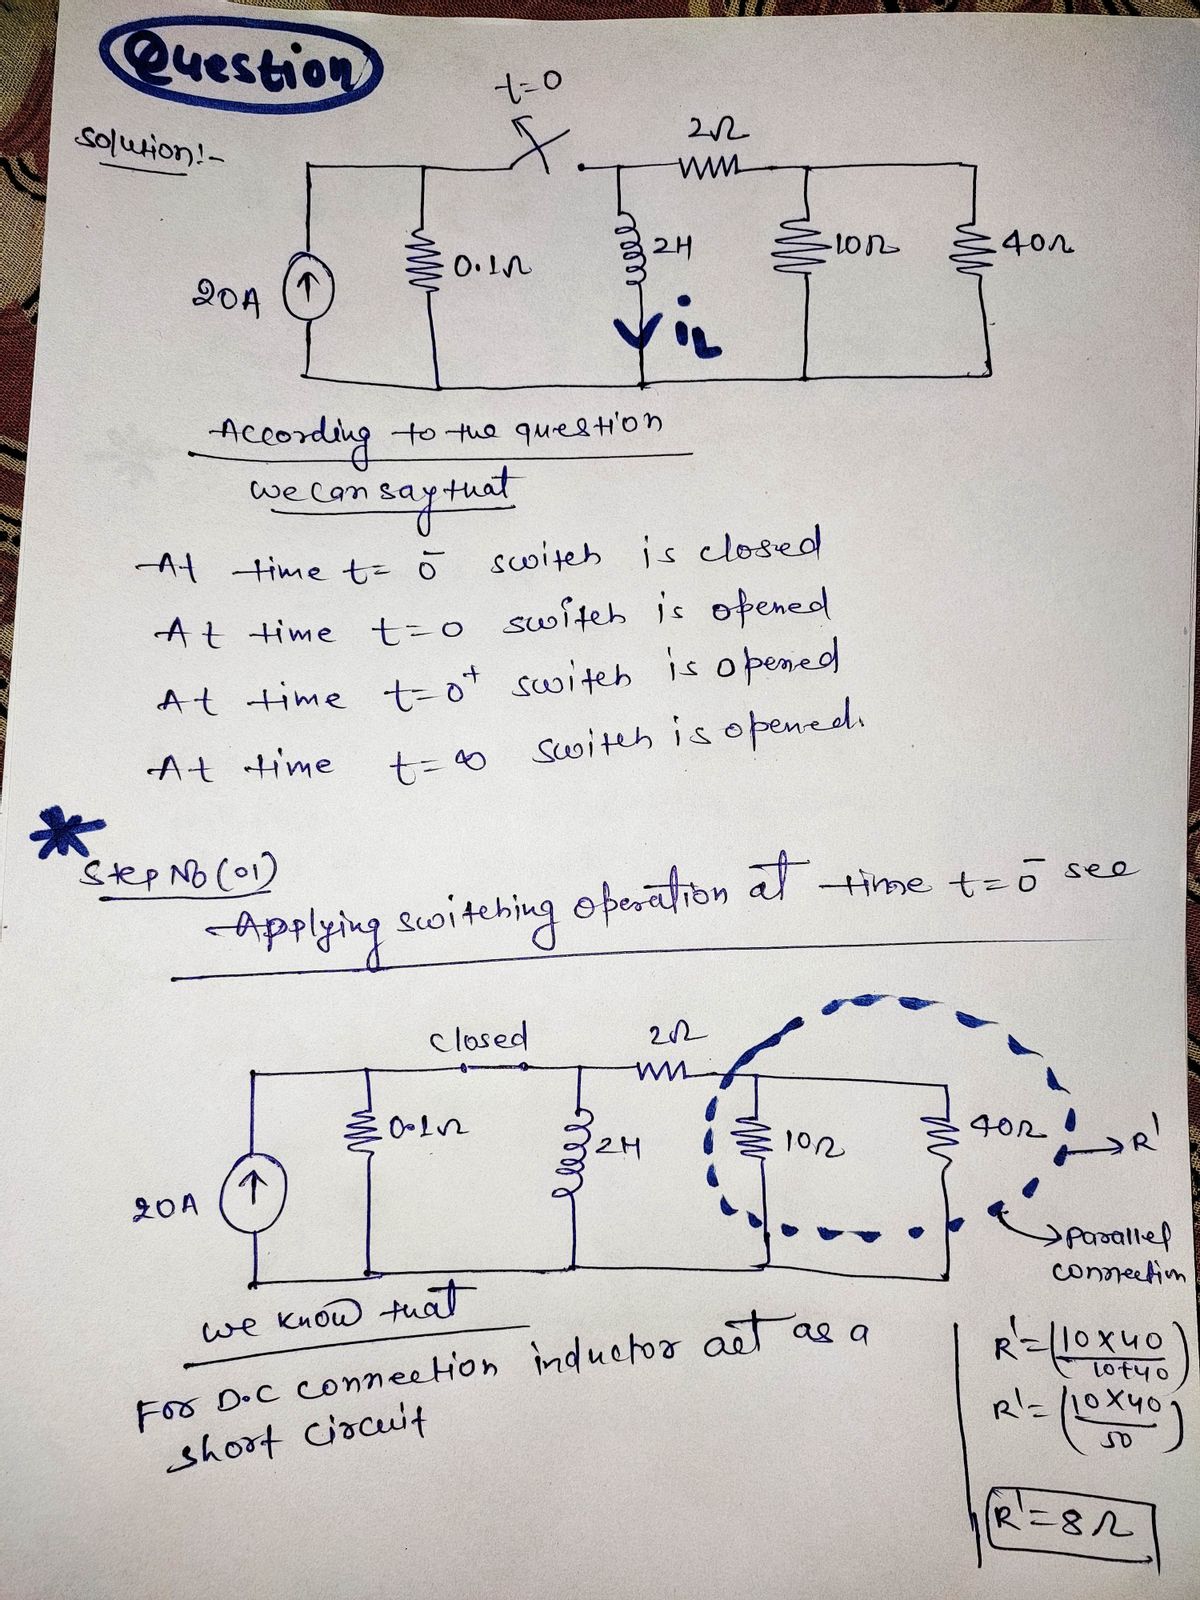 Question
Solution:-
t=0
2Ω
20A
0.1Ω
2H
10Ω
40Ω
iL
According to the question
we can say that
At time t= 0⁻ switch is closed
At time t=0 switch is opened
At time t=0⁺ switch is opened
At time t=∞ switch is opened.
*
Step No (01)
Applying switching operation at time t=0⁻ see
closed
2Ω
20A
0.1Ω
2H
10Ω
40Ω
→R'
→parallel
connection
we know that
For D.C connection inductor act as a
short circuit
R'=(10×40/10+40)
R'=(10×40/50)
R'=8Ω